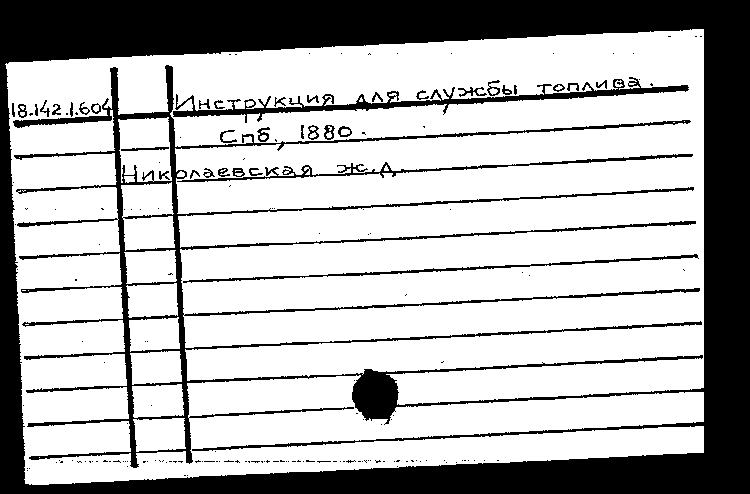 18.142.1.604 Инструкция для службы топлива.
Спб., 1880.
Николаевская ж.д.